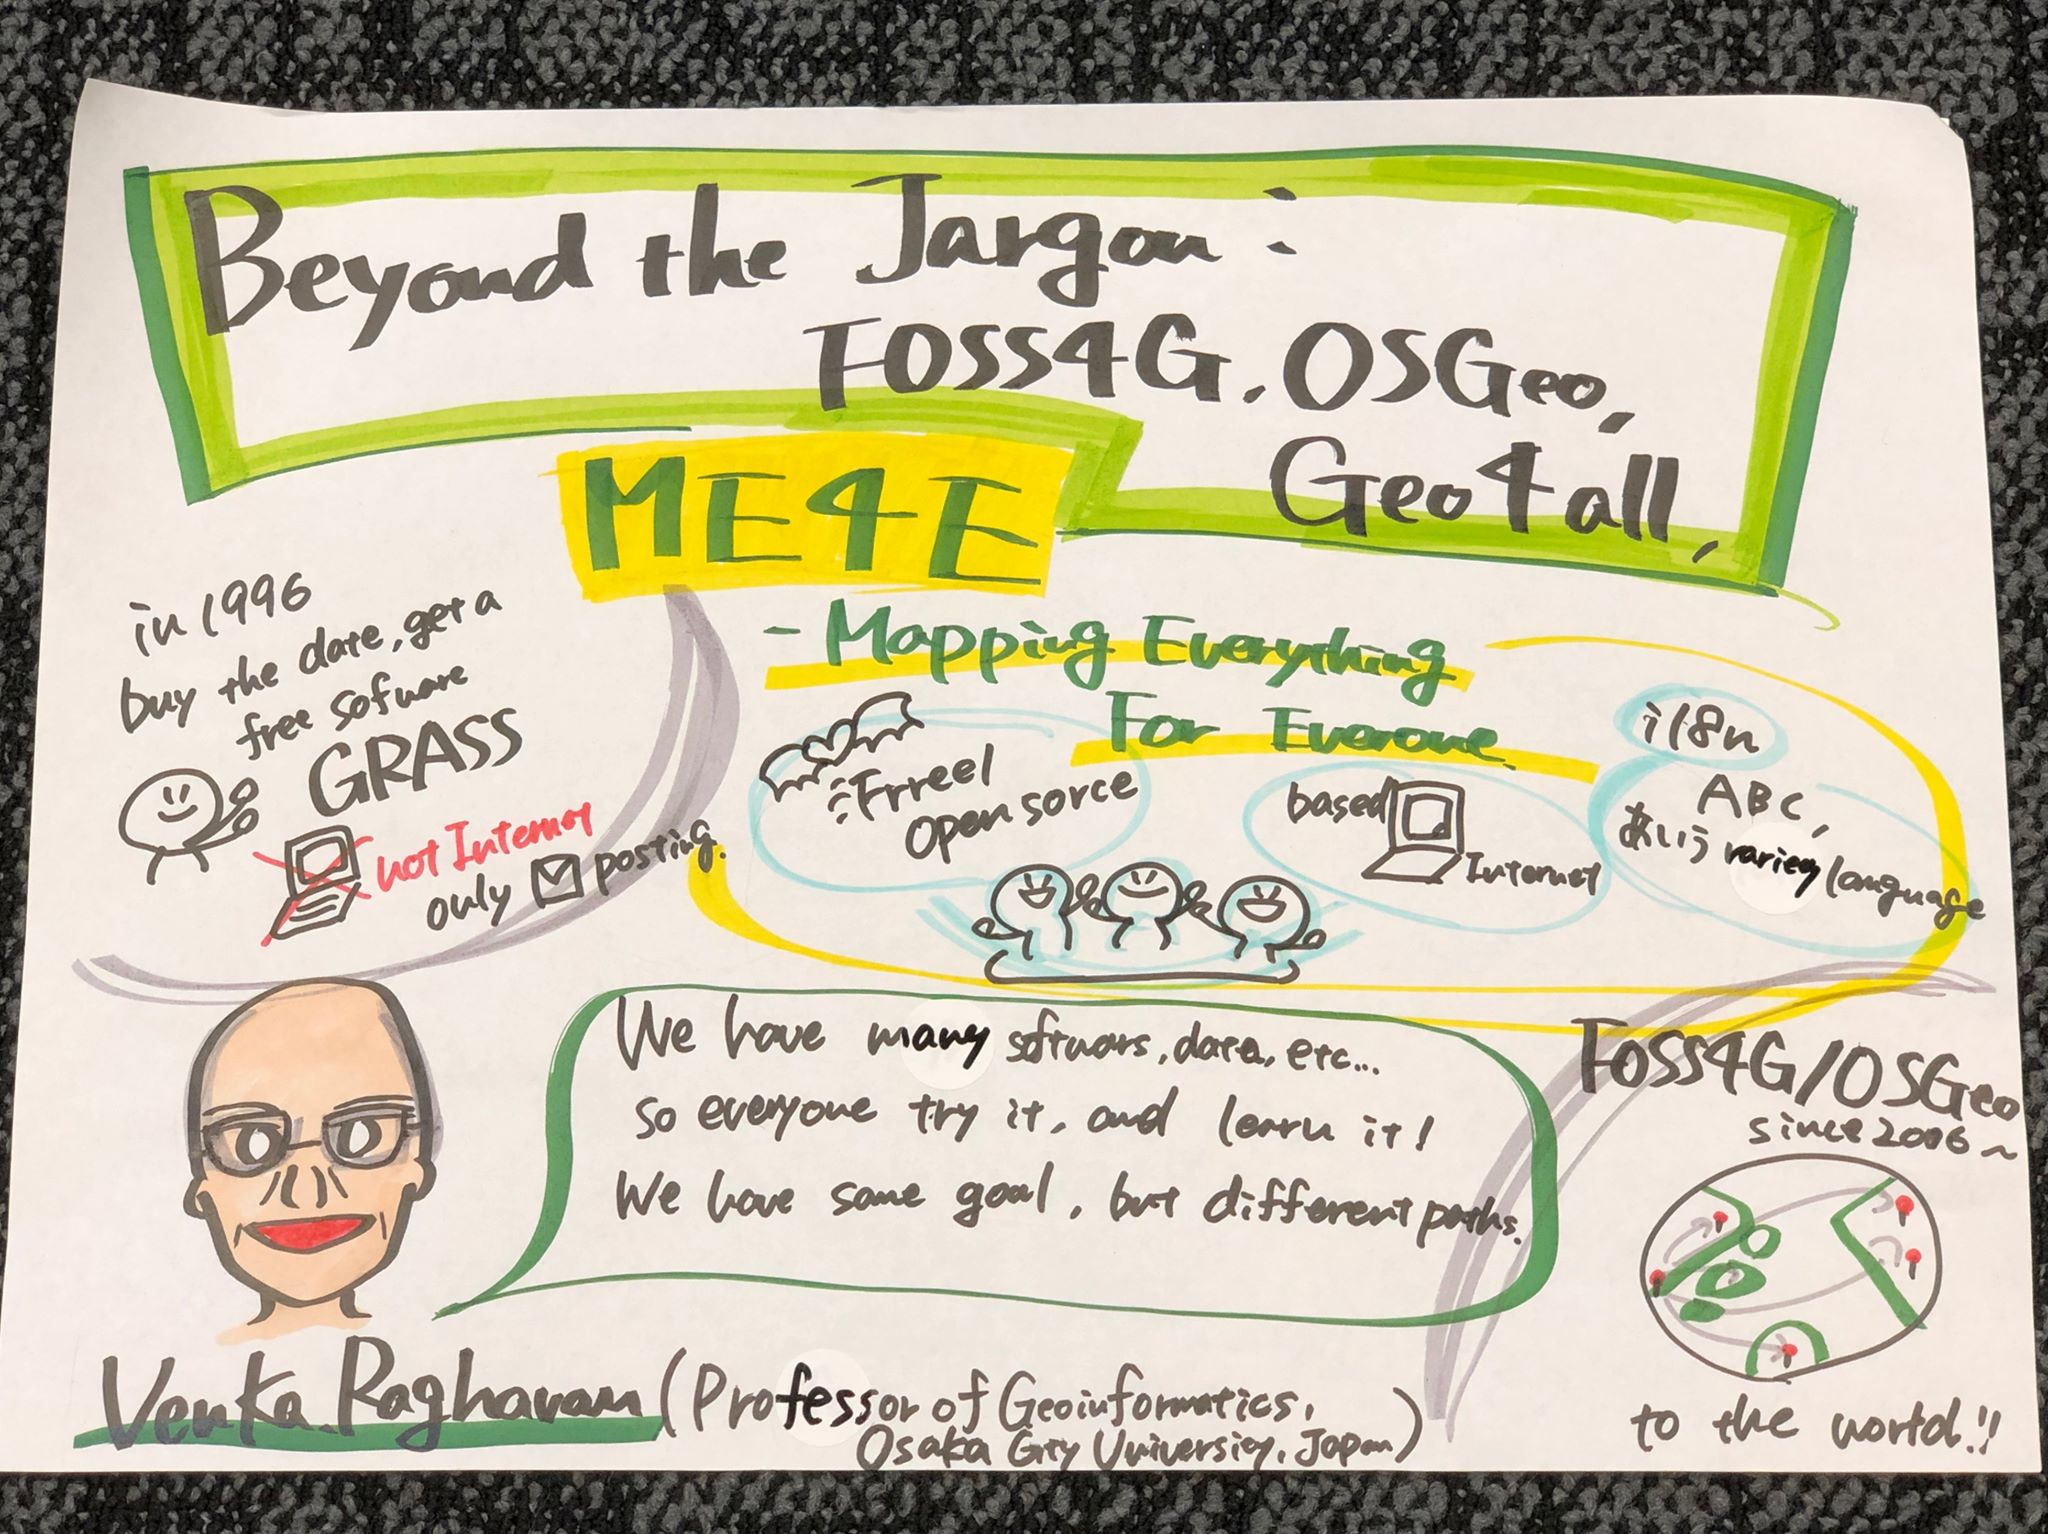 Beyond the Jargon:
FOSS4G, OSGeo,
Geo4all,
ME4E
- Mapping Everything
For Everone
in 1996
buy the date, get a
free sofware
GRASS
not Internet
only posting.
Frreel
open sorce
based
Internet
i18n
ABC,
あいう variey language
We have many softwars, data, etc...
so everyone try it, and learn it!
We have same goal, but different paths.
FOSS4G/OSGeo
since 2006~
to the world!!
Venka.Raghavan (Professor of Geoinformatics,
Osaka City University, Japan)